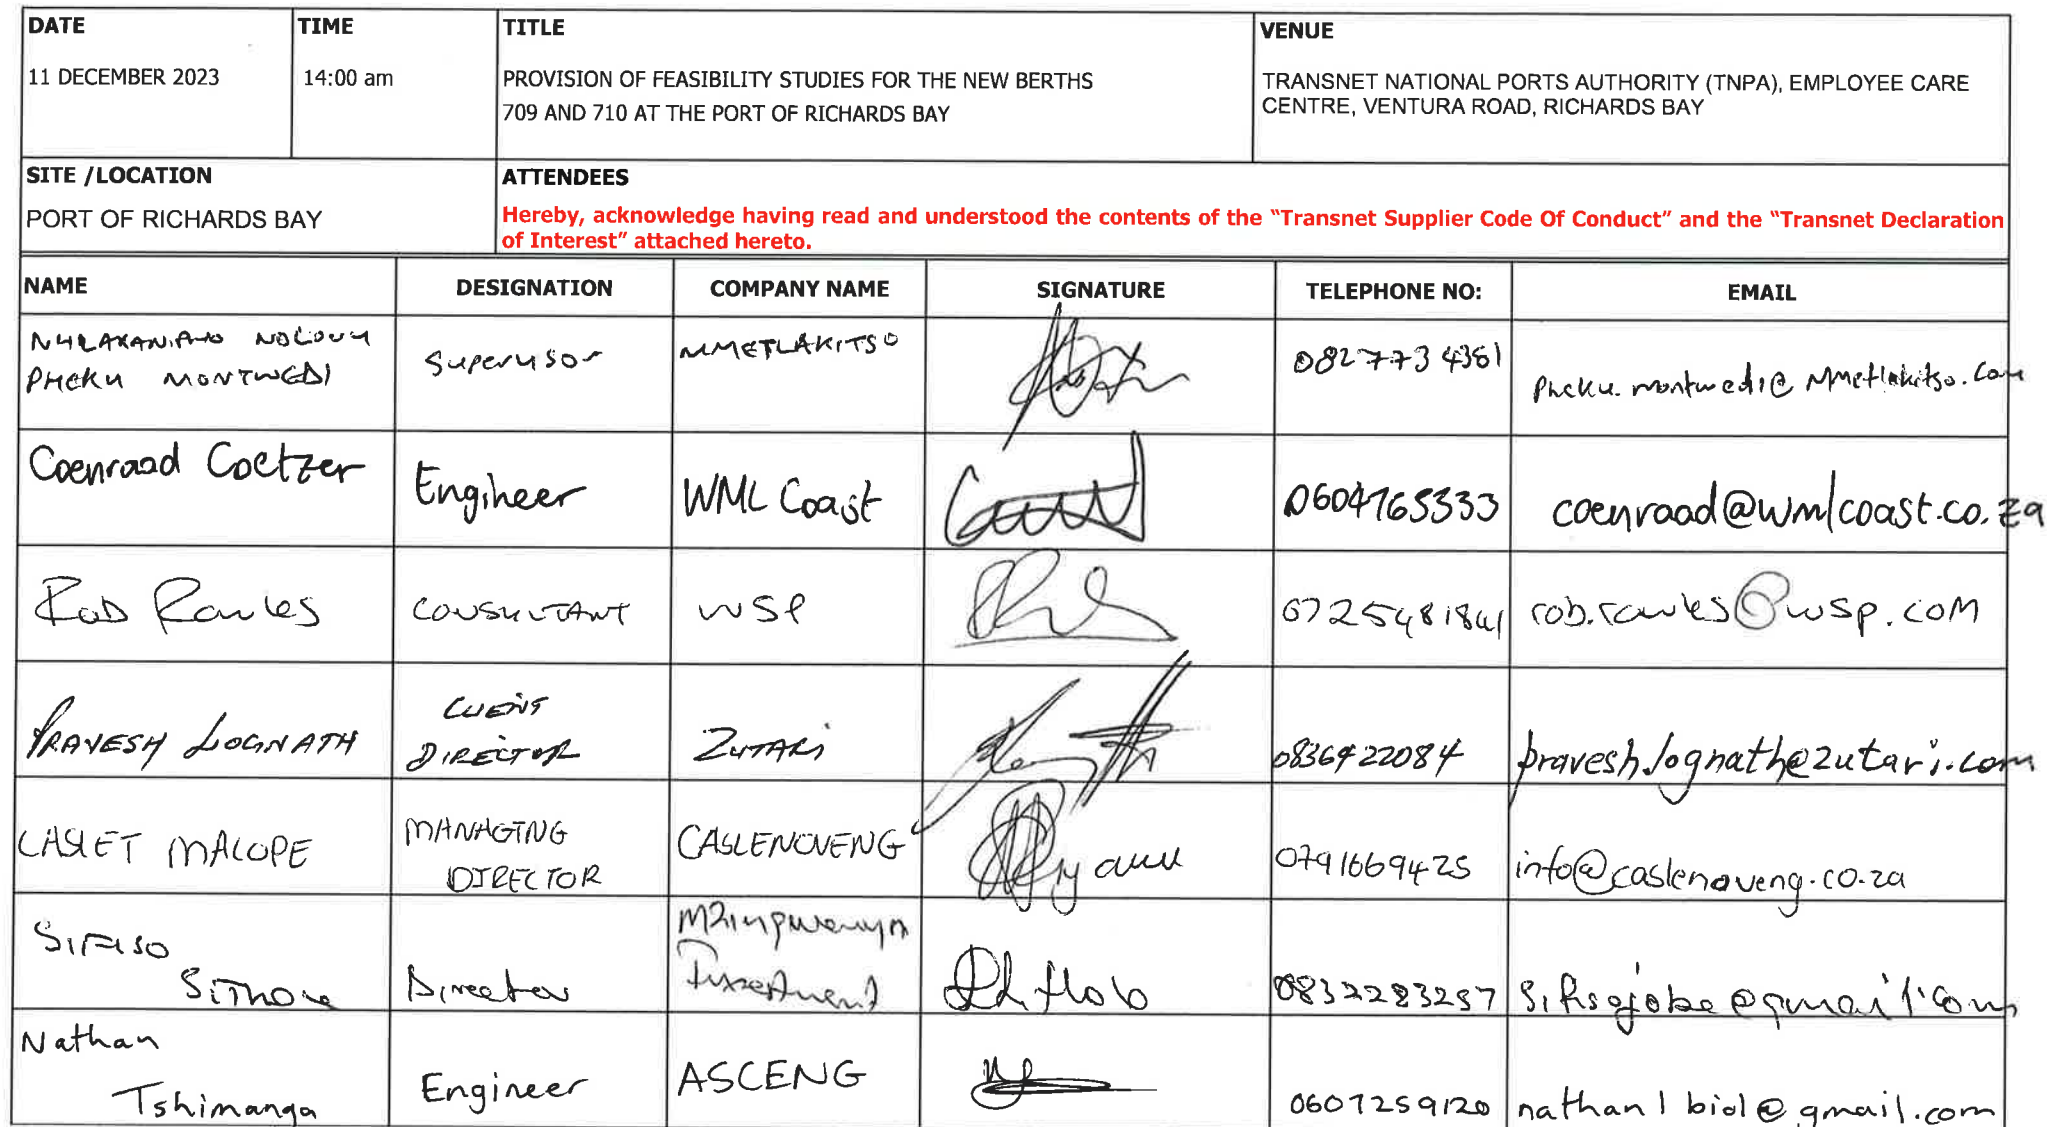 DATE
TIME
TITLE
VENUE
11 DECEMBER 2023
14:00 am
PROVISION OF FEASIBILITY STUDIES FOR THE NEW BERTHS
709 AND 710 AT THE PORT OF RICHARDS BAY
TRANSNET NATIONAL PORTS AUTHORITY (TNPA), EMPLOYEE CARE
CENTRE, VENTURA ROAD, RICHARDS BAY
SITE /LOCATION
PORT OF RICHARDS BAY
ATTENDEES
Hereby, acknowledge having read and understood the contents of the “Transnet Supplier Code Of Conduct” and the “Transnet Declaration
of Interest” attached hereto.
NAME
DESIGNATION
COMPANY NAME
SIGNATURE
TELEPHONE NO:
EMAIL
PHEKU MONTWEDI
Supervisor
MMETLAKITSO
0827734361
Pheku.montwedi@Mmetlakitso.com
Coenraad Coetzer
Engineer
WML Coast
0604765333
coenraad@wmlcoast.co.za
Rob Rawles
CONSULTANT
WSP
0725481841
rob.rawles@wsp.com
PRAVESH LOGNATH
CLIENT
DIRECTOR
ZUTARI
0836422084
pravesh.lognath@zutari.com
CASLET MALOPE
MANAGING
DIRECTOR
CASLENOVENG
0791669425
info@caslenoveng.co.za
SIFISO
SITHOLE
Director
Investment
0832283257
sifisojobe@gmail.com
Nathan
Tshimanga
Engineer
ASCENG
0607259120
nathan1biol@gmail.com